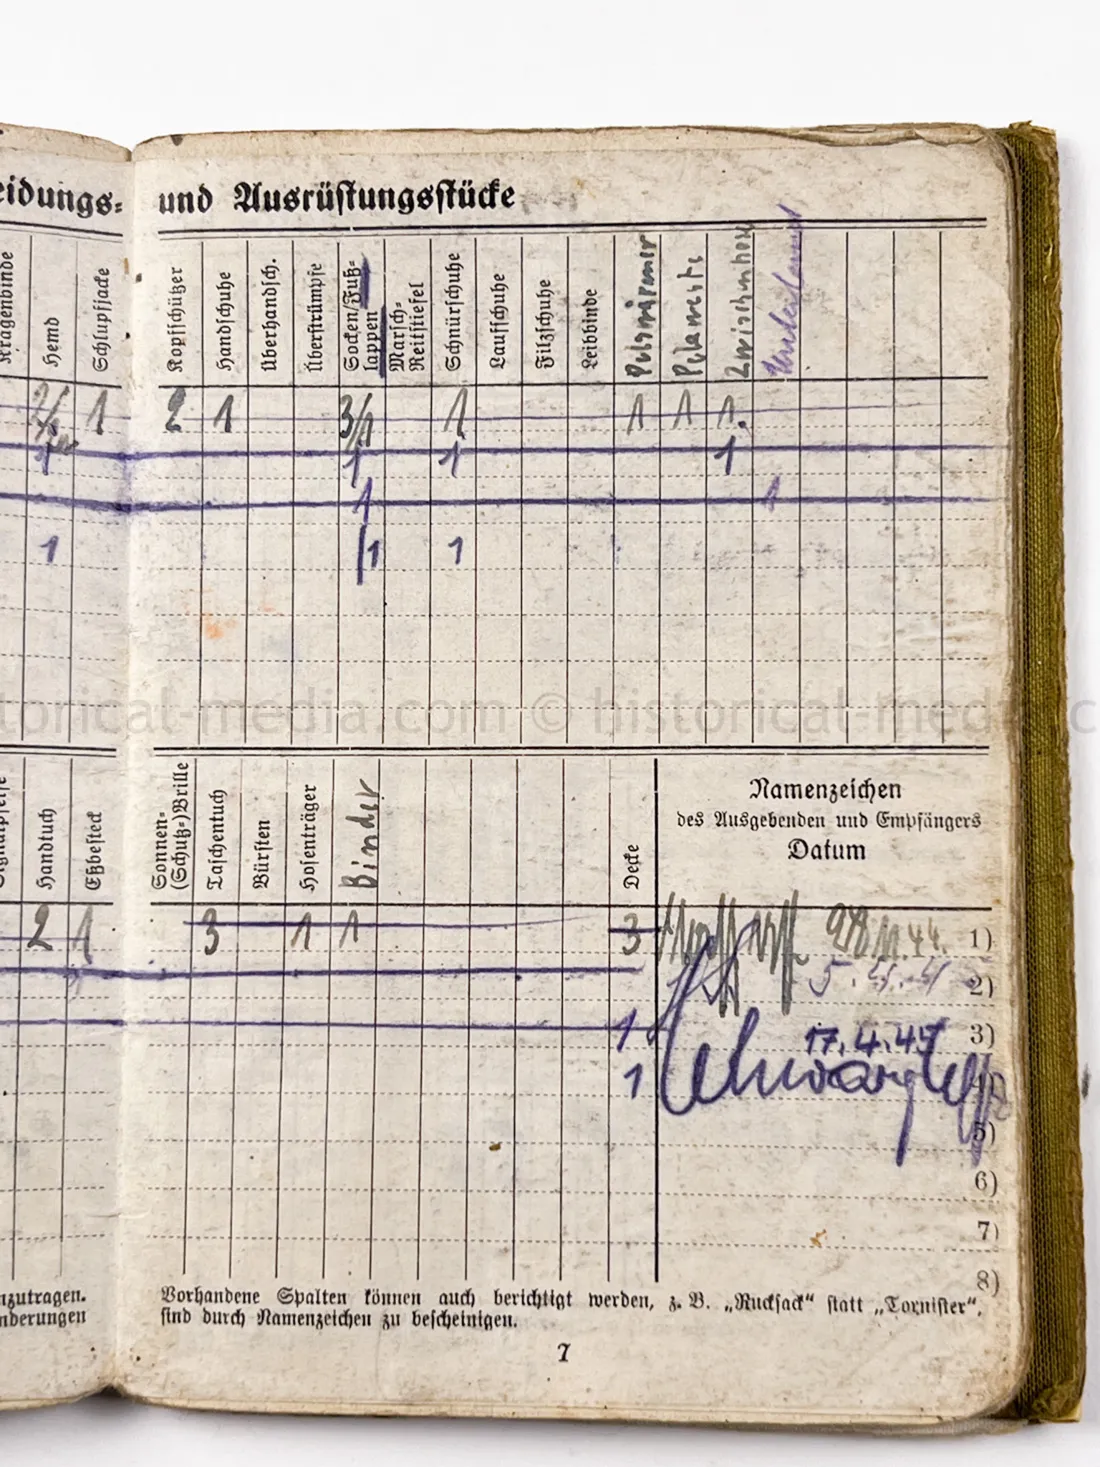 eidungs- und Ausrüstungsstücke
Kragenbinde
Hemd
Schlupfjacke
Kopfschützer
Handschuhe
Überhandsch.
Überstrümpfe
Socken/Fuß-
lappen
Marsch-
Reitstiefel
Schnürschuhe
Laufschuhe
Filzschuhe
Leibbinde
1 2 1 3/1 1 1 1 1.
1 1 1 1
1 1
1 /1 1
historical-media.com © historical-media.c
Handtuch
Eßbesteck
Sonnen-
(Schutz-)Brille
Taschentuch
Bürsten
Hosenträger
Binder
Decke
Namenzeichen
des Ausgebenden und Empfängers
Datum
2 1 3 1 1 3 28.11.44. 1)
2)
1 17.4.45 3)
1
5)
6)
7)
8)
nzutragen.
nderungen
Vorhandene Spalten können auch berichtigt werden, z. B. „Rucksack“ statt „Tornister“,
sind durch Namenzeichen zu bescheinigen.
7